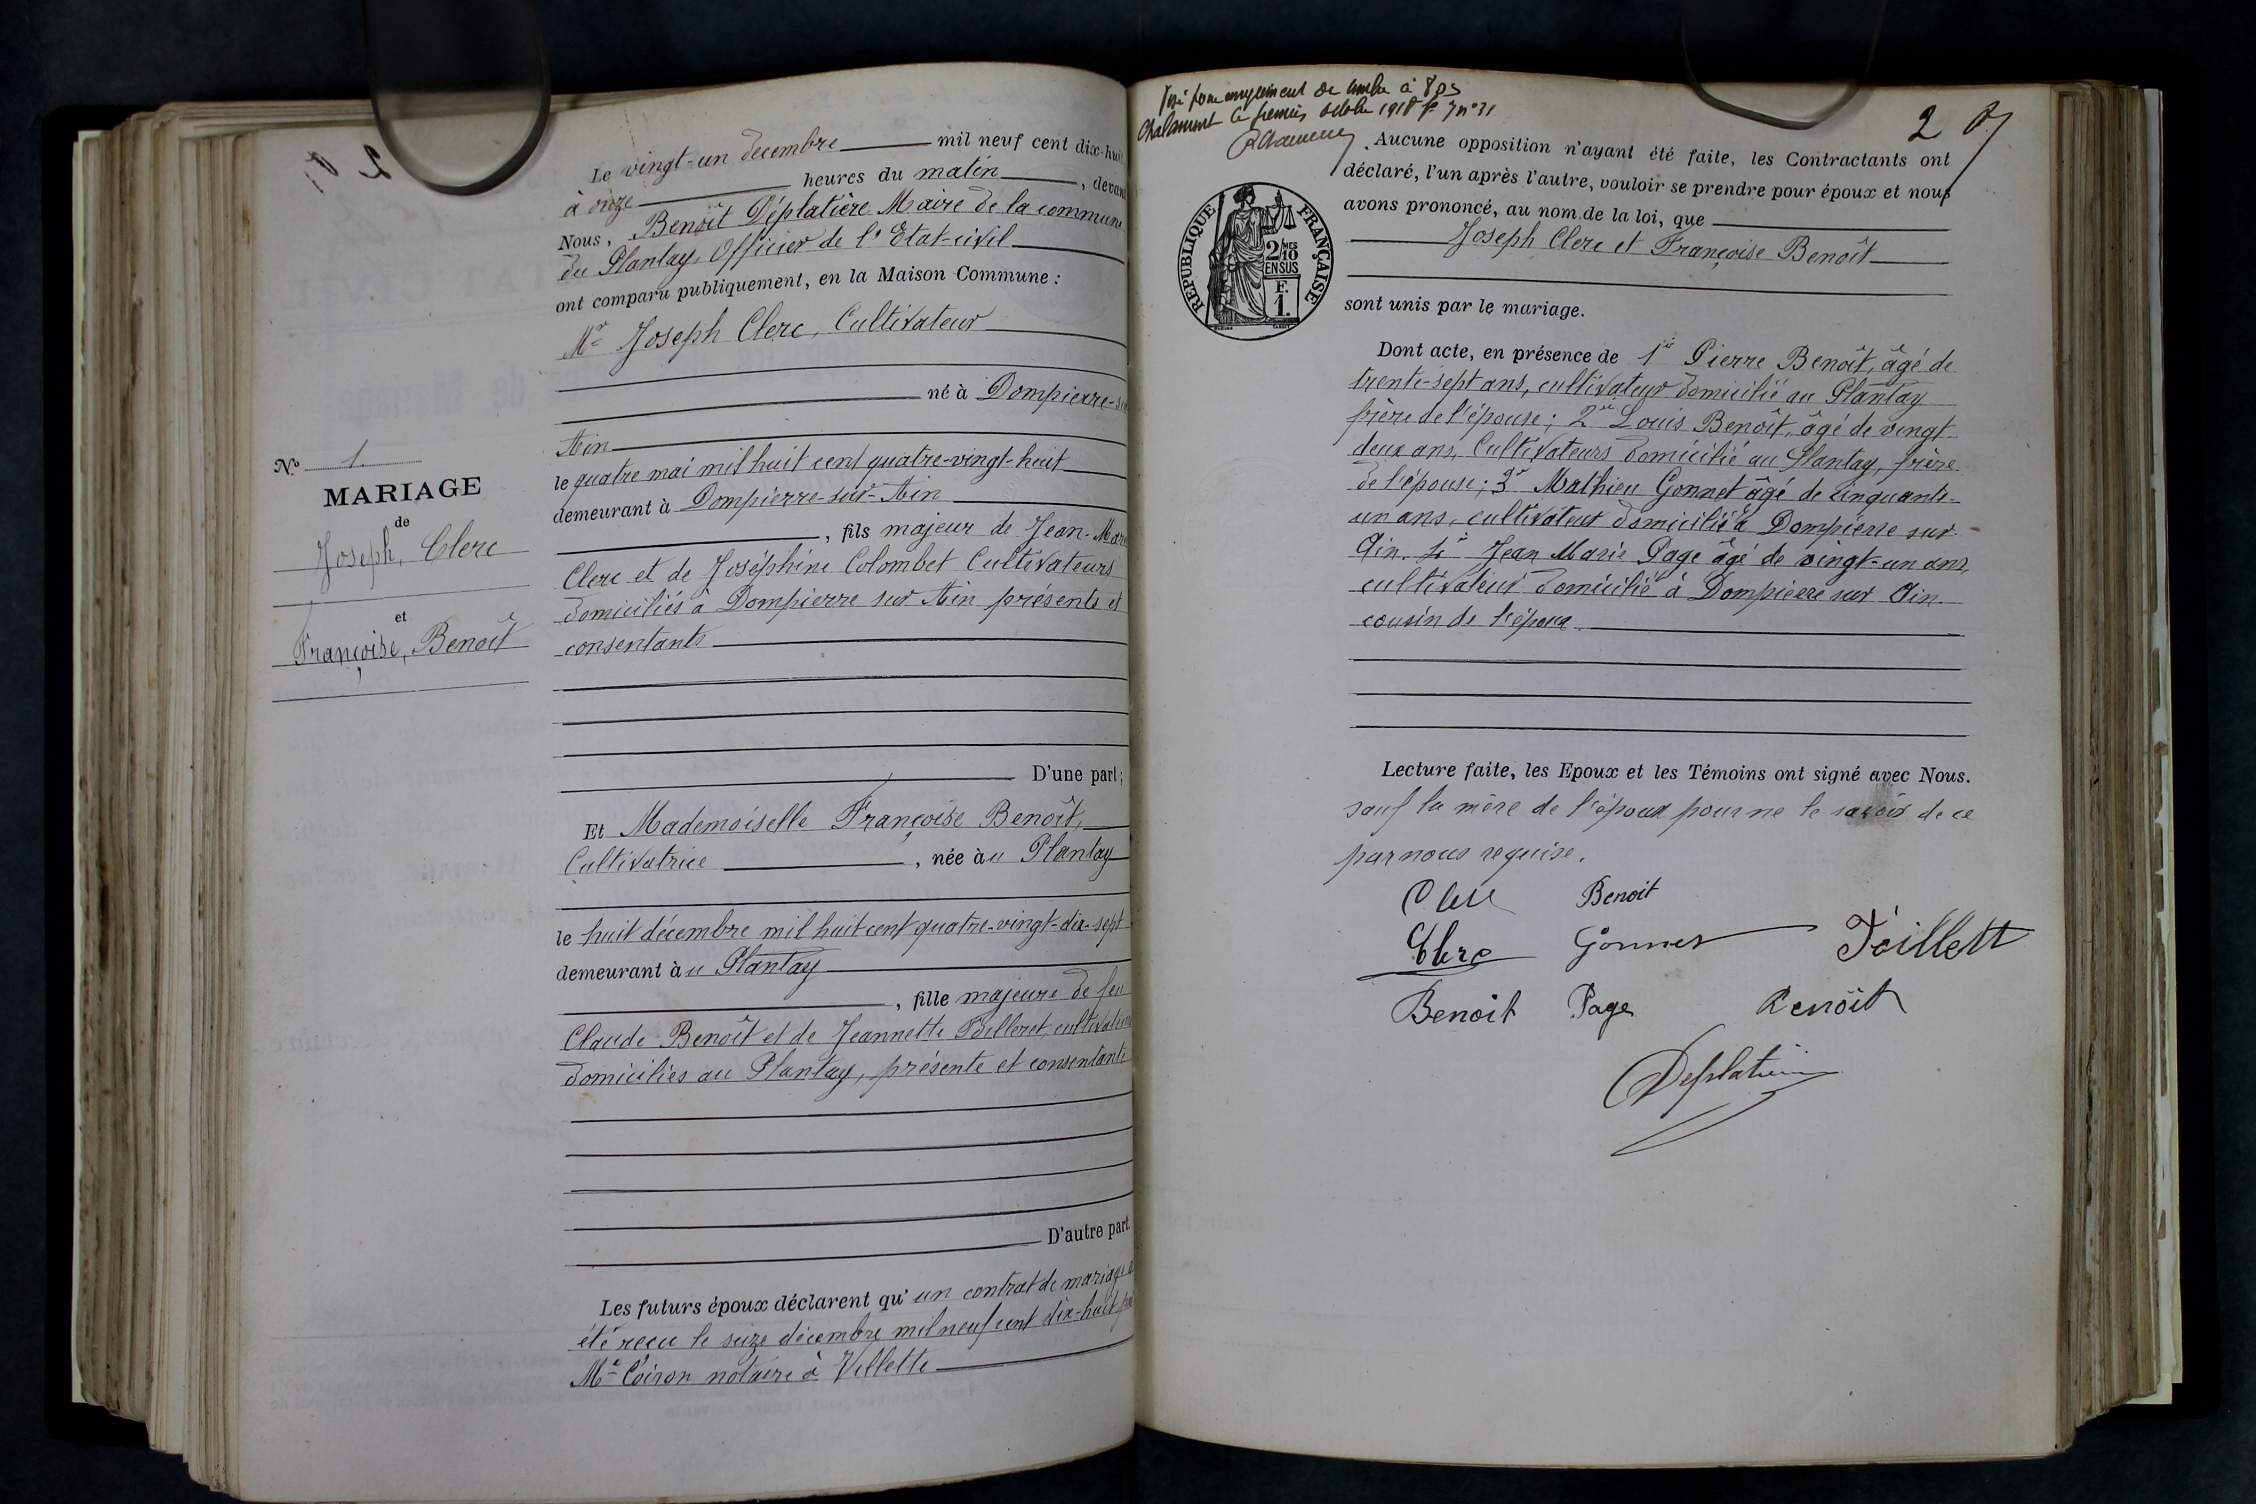 Nº 1.
MARIAGE
de
Joseph, Clerc
et
Françoise, Benoît
Le vingt-un décembre mil neuf cent dix-huit
à onze heures du matin, devant
Nous, Benoît Déplatière Maire de la commune
du Plantay, Officier de l'Etat-civil
ont comparu publiquement, en la Maison Commune :
Mr Joseph Clerc, Cultivateur
né à Dompierre-sur
Ain
le quatre mai mil huit cent quatre-vingt-huit
demeurant à Dompierre-sur-Ain
, fils majeur de Jean-Marie
Clerc et de Joséphine Colombet Cultivateurs
domiciliés à Dompierre sur Ain présents et
consentants
D'une part ;
Et Mademoiselle Françoise Benoît,
Cultivatrice, née àu Plantay
le huit décembre mil huit cent quatre-vingt-dix-sept
demeurant àu Plantay
, fille majeure de feu
Claude Benoît et de Jeannette
domiciliés au Plantay, présente et consentante
D'autre part.
Les futurs époux déclarent qu'un contrat de mariage a
été reçu le seize décembre mil neuf cent dix-huit par
Me Coiron notaire à Villette
à
Chalamont le premier octobre 1918
2
Aucune opposition n'ayant été faite, les Contractants ont
déclaré, l'un après l'autre, vouloir se prendre pour époux et nous
avons prononcé, au nom de la loi, que
Joseph Clerc et Françoise Benoît
sont unis par le mariage.
RÉPUBLIQUE FRANÇAISE
2/10 MES
EN SUS
F.
1.
Dont acte, en présence de 1er Pierre Benoît, âgé de
trente-sept ans, cultivateur domicilié au Plantay
frère de l'épouse ; 2e Louis Benoît, âgé de vingt
deux ans, Cultivateurs domicilié au Plantay, frère
de l'épouse ; 3e Mathieu Gonnet âgé de cinquante-
un ans, cultivateur domicilié à Dompierre sur
Ain. 4e Jean Marie Page âgé de vingt-un ans,
cultivateur domicilié à Dompierre sur Ain.
cousin de l'époux
Lecture faite, les Epoux et les Témoins ont signé avec Nous.
sauf la mère de l'époux pour ne le savoir de ce
par nous requise.
Clerc Benoit
Clerc Gonnet
Benoit Page Benoit
Deplatière